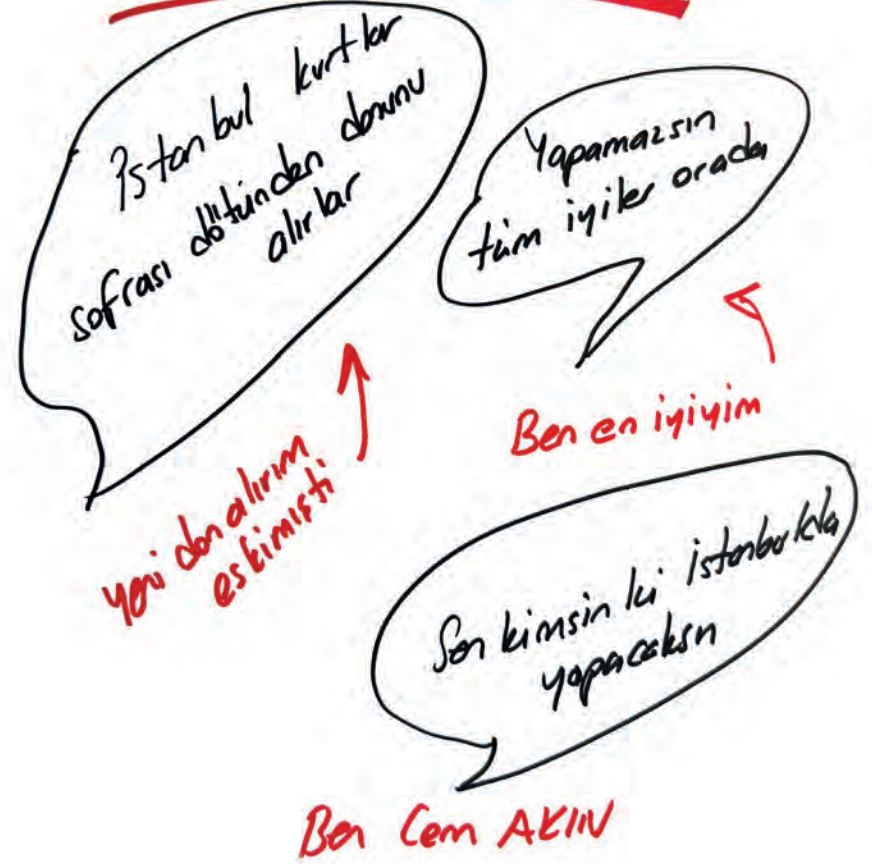 İstanbul kurtlar
sofrası dötünden donunu
alırlar
yeni don alırım
eskimişti
Yapamazsın
tüm iyiler orada
Ben en iyiyim
Sen kimsin ki İstanbulda
yapacaksın
Ben Cem AKIN